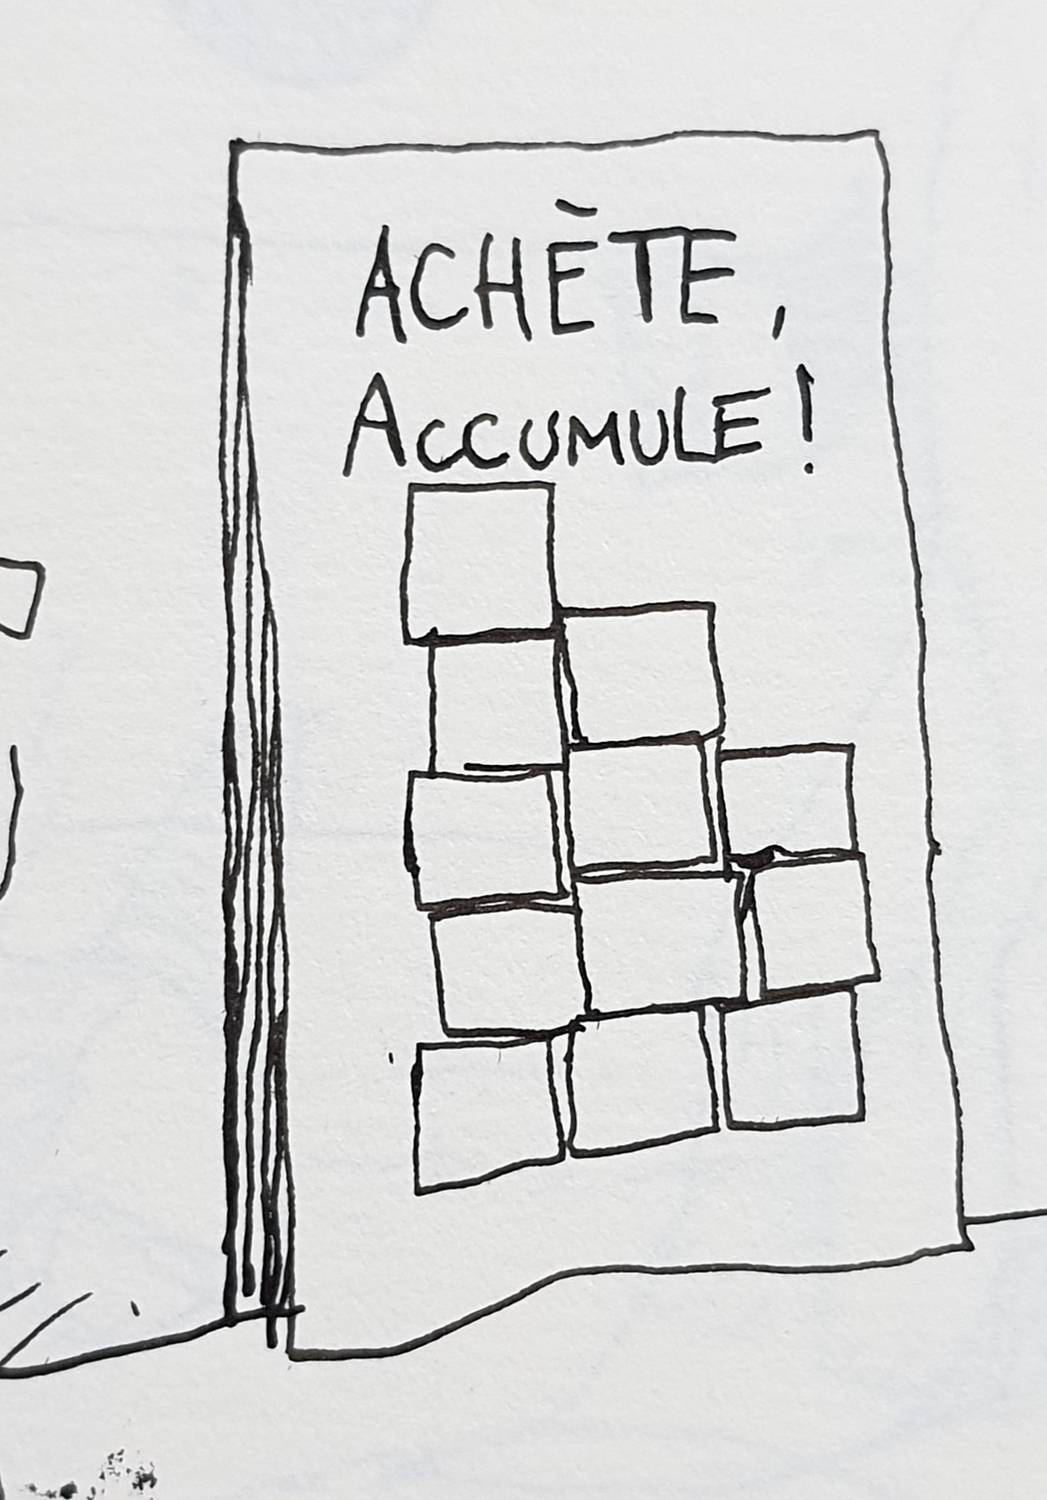 ACHÈTE,
ACCUMULE!